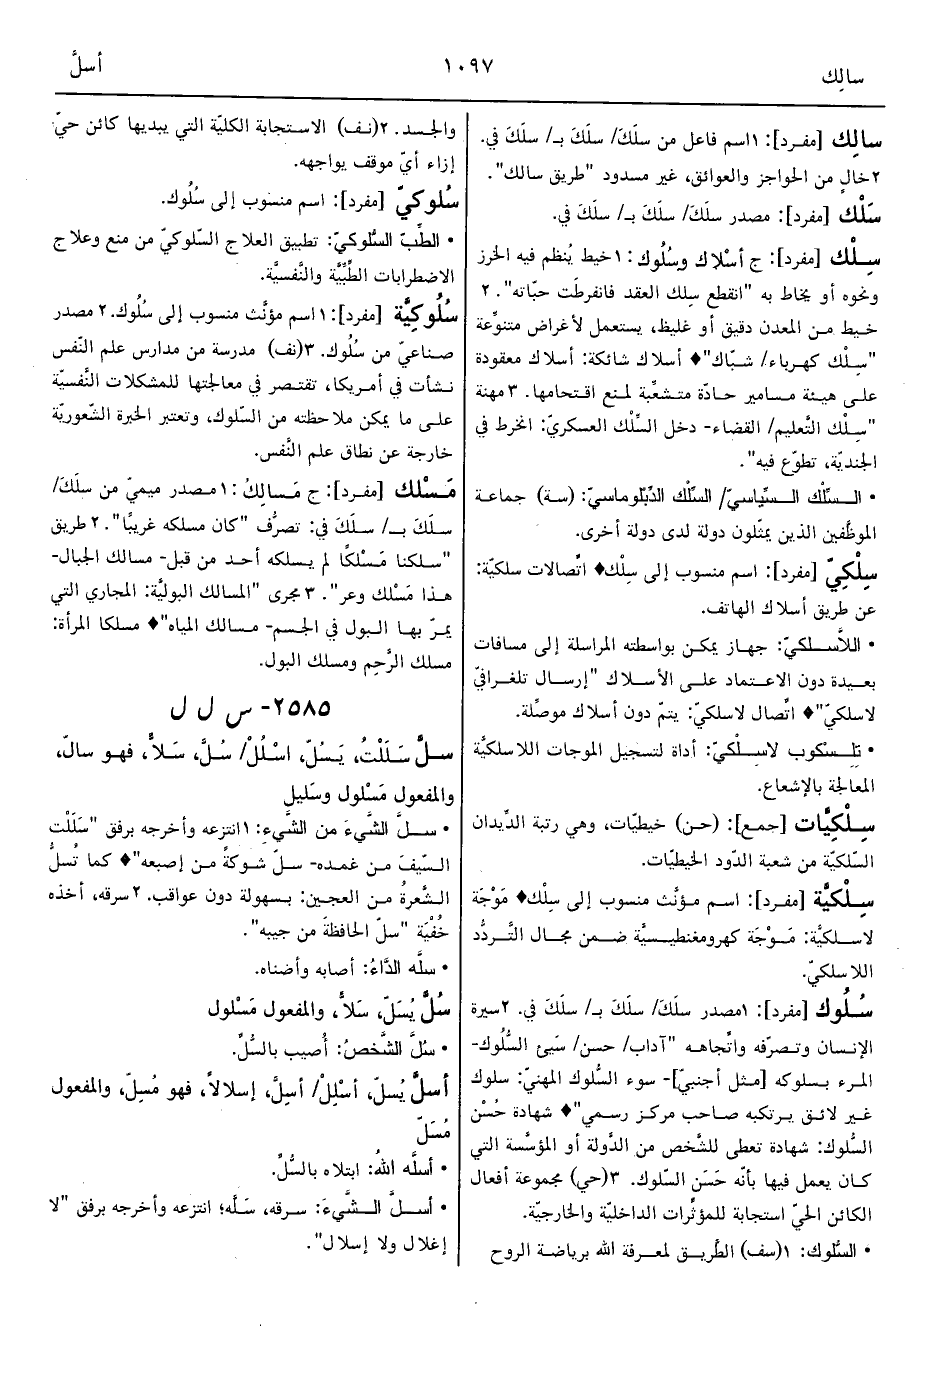 سالِك
١٠٩٧
أسلَّ
سالِك [مفرد]: ١اسم فاعل من سلَكَ/ سلَكَ بـ/ سلَكَ في.
٢خالٍ من الحواجز والعوائق، غير مسدود "طريق سالك".
سَلْك [مفرد]: مصدر سلَكَ/ سلَكَ بـ/ سلَكَ في.
سِلْك [مفرد]: ج أسْلاك وسُلُوك: ١خيط يُنظم فيه الخرز
ونحوه أو يخاط به "انقطع سِلك العقد فانفرطَت حبّاته". ٢
خيط من المعدن دقيق أو غليظ، يستعمل لأغراض متنوِّعة
"سِلْك كهرباء/ شبّاك"♦ أسلاك شائكة: أسلاك معقودة
على هيئة مسامير حادّة متشعِّبة لمنع اقتحامها. ٣مهنة
"سِلْك التَّعليم/ القضاء- دخل السِّلْك العسكريّ: انخرط في
الجنديّة، تطوّع فيه".
• السِّلْك السِّياسيّ/ السِّلْك الدِّبلوماسيّ: (سة) جماعة
الموظَّفين الذين يمثِّلون دولة لدى دولة أخرى.
سِلْكيّ [مفرد]: اسم منسوب إلى سِلْك♦ اتِّصالات سلكيّة:
عن طريق أسلاك الهاتف.
• اللاَّسلكيّ: جهاز يمكن بواسطته المراسلة إلى مسافات
بعيدة دون الاعتماد على الأسلاك "إرسال تلغرافيّ
لاسلكيّ"♦ اتِّصال لاسلكيّ: يتمّ دون أسلاك موصِّلة.
• تلسكوب لاسِلْكيّ: أداة لتسجيل الموجات اللاسلكيَّة
المعالجة بالإشعاع.
سِلْكيَّات [جمع]: (حن) خيطيّات، وهي رتبة الدِّيدان
السّلكيّة من شعبة الدّود الخيطيّات.
سِلْكيَّة [مفرد]: اسم مؤنَّث منسوب إلى سِلْك♦ مَوْجَة
لاسلكيَّة: مَوْجَة كهرومغنطيسيَّة ضمن مجال التَّردُّد
اللاسلكيّ.
سُلُوك [مفرد]: ١مصدر سلَكَ/ سلَكَ بـ/ سلَكَ في. ٢سيرة
الإنسان وتصرّفه واتِّجاهه "آداب/ حسن/ سَيِّئ السُّلوك-
المرء بسلوكه [مثل أجنبيّ]- سوء السُّلوك المهنيّ: سلوك
غير لائق يرتكبه صاحب مركز رسمي"♦ شهادة حُسْن
السُّلوك: شهادة تعطى للشَّخص من الدَّولة أو المؤسَّسة التي
كان يعمل فيها بأنّه حَسَن السّلوك. ٣(حي) مجموعة أفعال
الكائن الحيّ استجابة للمؤثِّرات الداخليّة والخارجيّة.
• السُّلوك: ١(سف) الطَّريق لمعرفة الله برياضة الروح
والجسد. ٢(نف) الاستجابة الكليّة التي يبديها كائن حيّ
إزاء أيّ موقف يواجهه.
سُلوكيّ [مفرد]: اسم منسوب إلى سُلُوك.
• الطِّبّ السُّلوكيّ: تطبيق العلاج السّلوكيّ من منع وعلاج
الاضطرابات الطِّبِّيَّة والنَّفسيَّة.
سُلُوكيَّة [مفرد]: ١اسم مؤنَّث منسوب إلى سُلوك. ٢مصدر
صناعيّ من سُلوك. ٣(نف) مدرسة من مدارس علم النّفس
نشأت في أمريكا، تقتصر في معالجتها للمشكلات النَّفسيَّة
على ما يمكن ملاحظته من السّلوك، وتعتبر الخبرة الشّعوريّة
خارجة عن نطاق علم النَّفس.
مَسْلك [مفرد]: ج مَسالكُ: ١مصدر ميميّ من سلَكَ/
سلَكَ بـ/ سلَكَ في: تصرُّف "كان مسلكه غريبًا". ٢طريق
"سلكنا مَسْلكًا لم يسلكه أحد من قبل- مسالك الجبال-
هذا مَسْلك وعر". ٣مجرى "المسالك البوليَّة: المجاري التي
يمرّ بها البول في الجسم- مسالك المياه"♦ مسلكا المرأة:
مسلك الرَّحِم ومسلك البول.
٢٥٨٥- س ل ل
سلَّ سَلَلْتُ، يَسُلّ، اسْلُلْ/ سُلَّ، سَلاًّ، فهو سالّ،
والمفعول مَسْلول وسَليل
• سلَّ الشَّيءَ من الشَّيء: ١انتزعه وأخرجه برفق "سَلَلْت
السَّيفَ من غمده- سلّ شوكةً من إصبعه"♦ كما تُسلُّ
الشَّعرةُ من العجين: بسهولة دون عواقب. ٢سرقه، أخذه
خُفْيَة "سلّ الحافظةَ من جيبه".
• سلَّه الدَّاءُ: أصابه وأضناه.
سُلَّ يُسَلّ، سَلاًّ، والمفعول مَسْلول
• سُلَّ الشَّخصُ: أُصيب بالسُّلِّ.
أسلَّ يُسلّ، أسْلِلْ/ أسِلَّ، إسلالاً، فهو مُسِلّ، والمفعول
مُسَلّ
• أسلَّه اللهُ: ابتلاه بالسُّلِّ.
• أسلَّ الشَّيءَ: سرقه، سَلَّه؛ انتزعه وأخرجه برفق "لا
إغلال ولا إسلال".